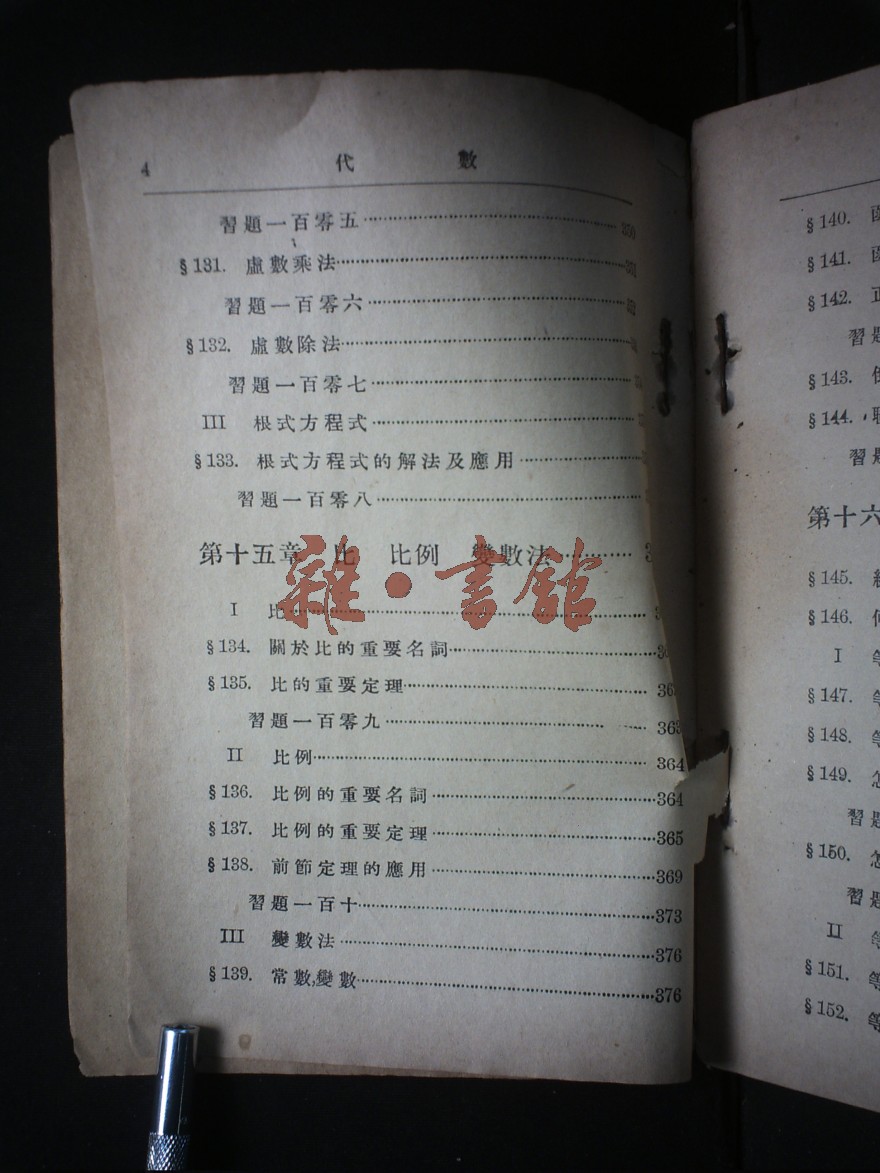 4 代數
習題一百零五 350
§131. 虛數乘法 351
習題一百零六
§132. 虛數除法
習題一百零七
III 根式方程式
§133. 根式方程式的解法及應用
習題一百零八
第十五章 比 比例 變數法
I 比
§134. 關於比的重要名詞
§135. 比的重要定理
習題一百零九 363
II 比例 364
§136. 比例的重要名詞 364
§137. 比例的重要定理 365
§138. 前節定理的應用 369
習題一百十 373
III 變數法 376
§139. 常數,變數 376
雜·書館
§140.
§141.
§142.
習題
§143.
§144.
習題
第十六
§145.
§146.
I
§147.
§148.
§149.
習題
§150.
習題
II
§151.
§152.